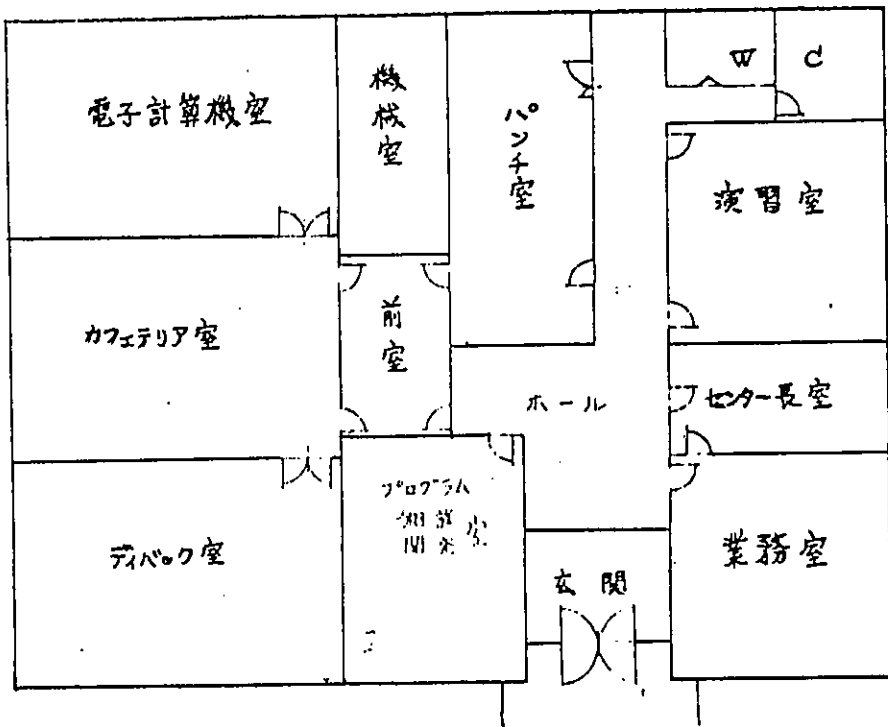 電子計算機室
機械室
パンチ室
W C
演習室
カフェテリア室
前室
ホール
センター長室
ディバック室
プログラム
室
玄関
業務室